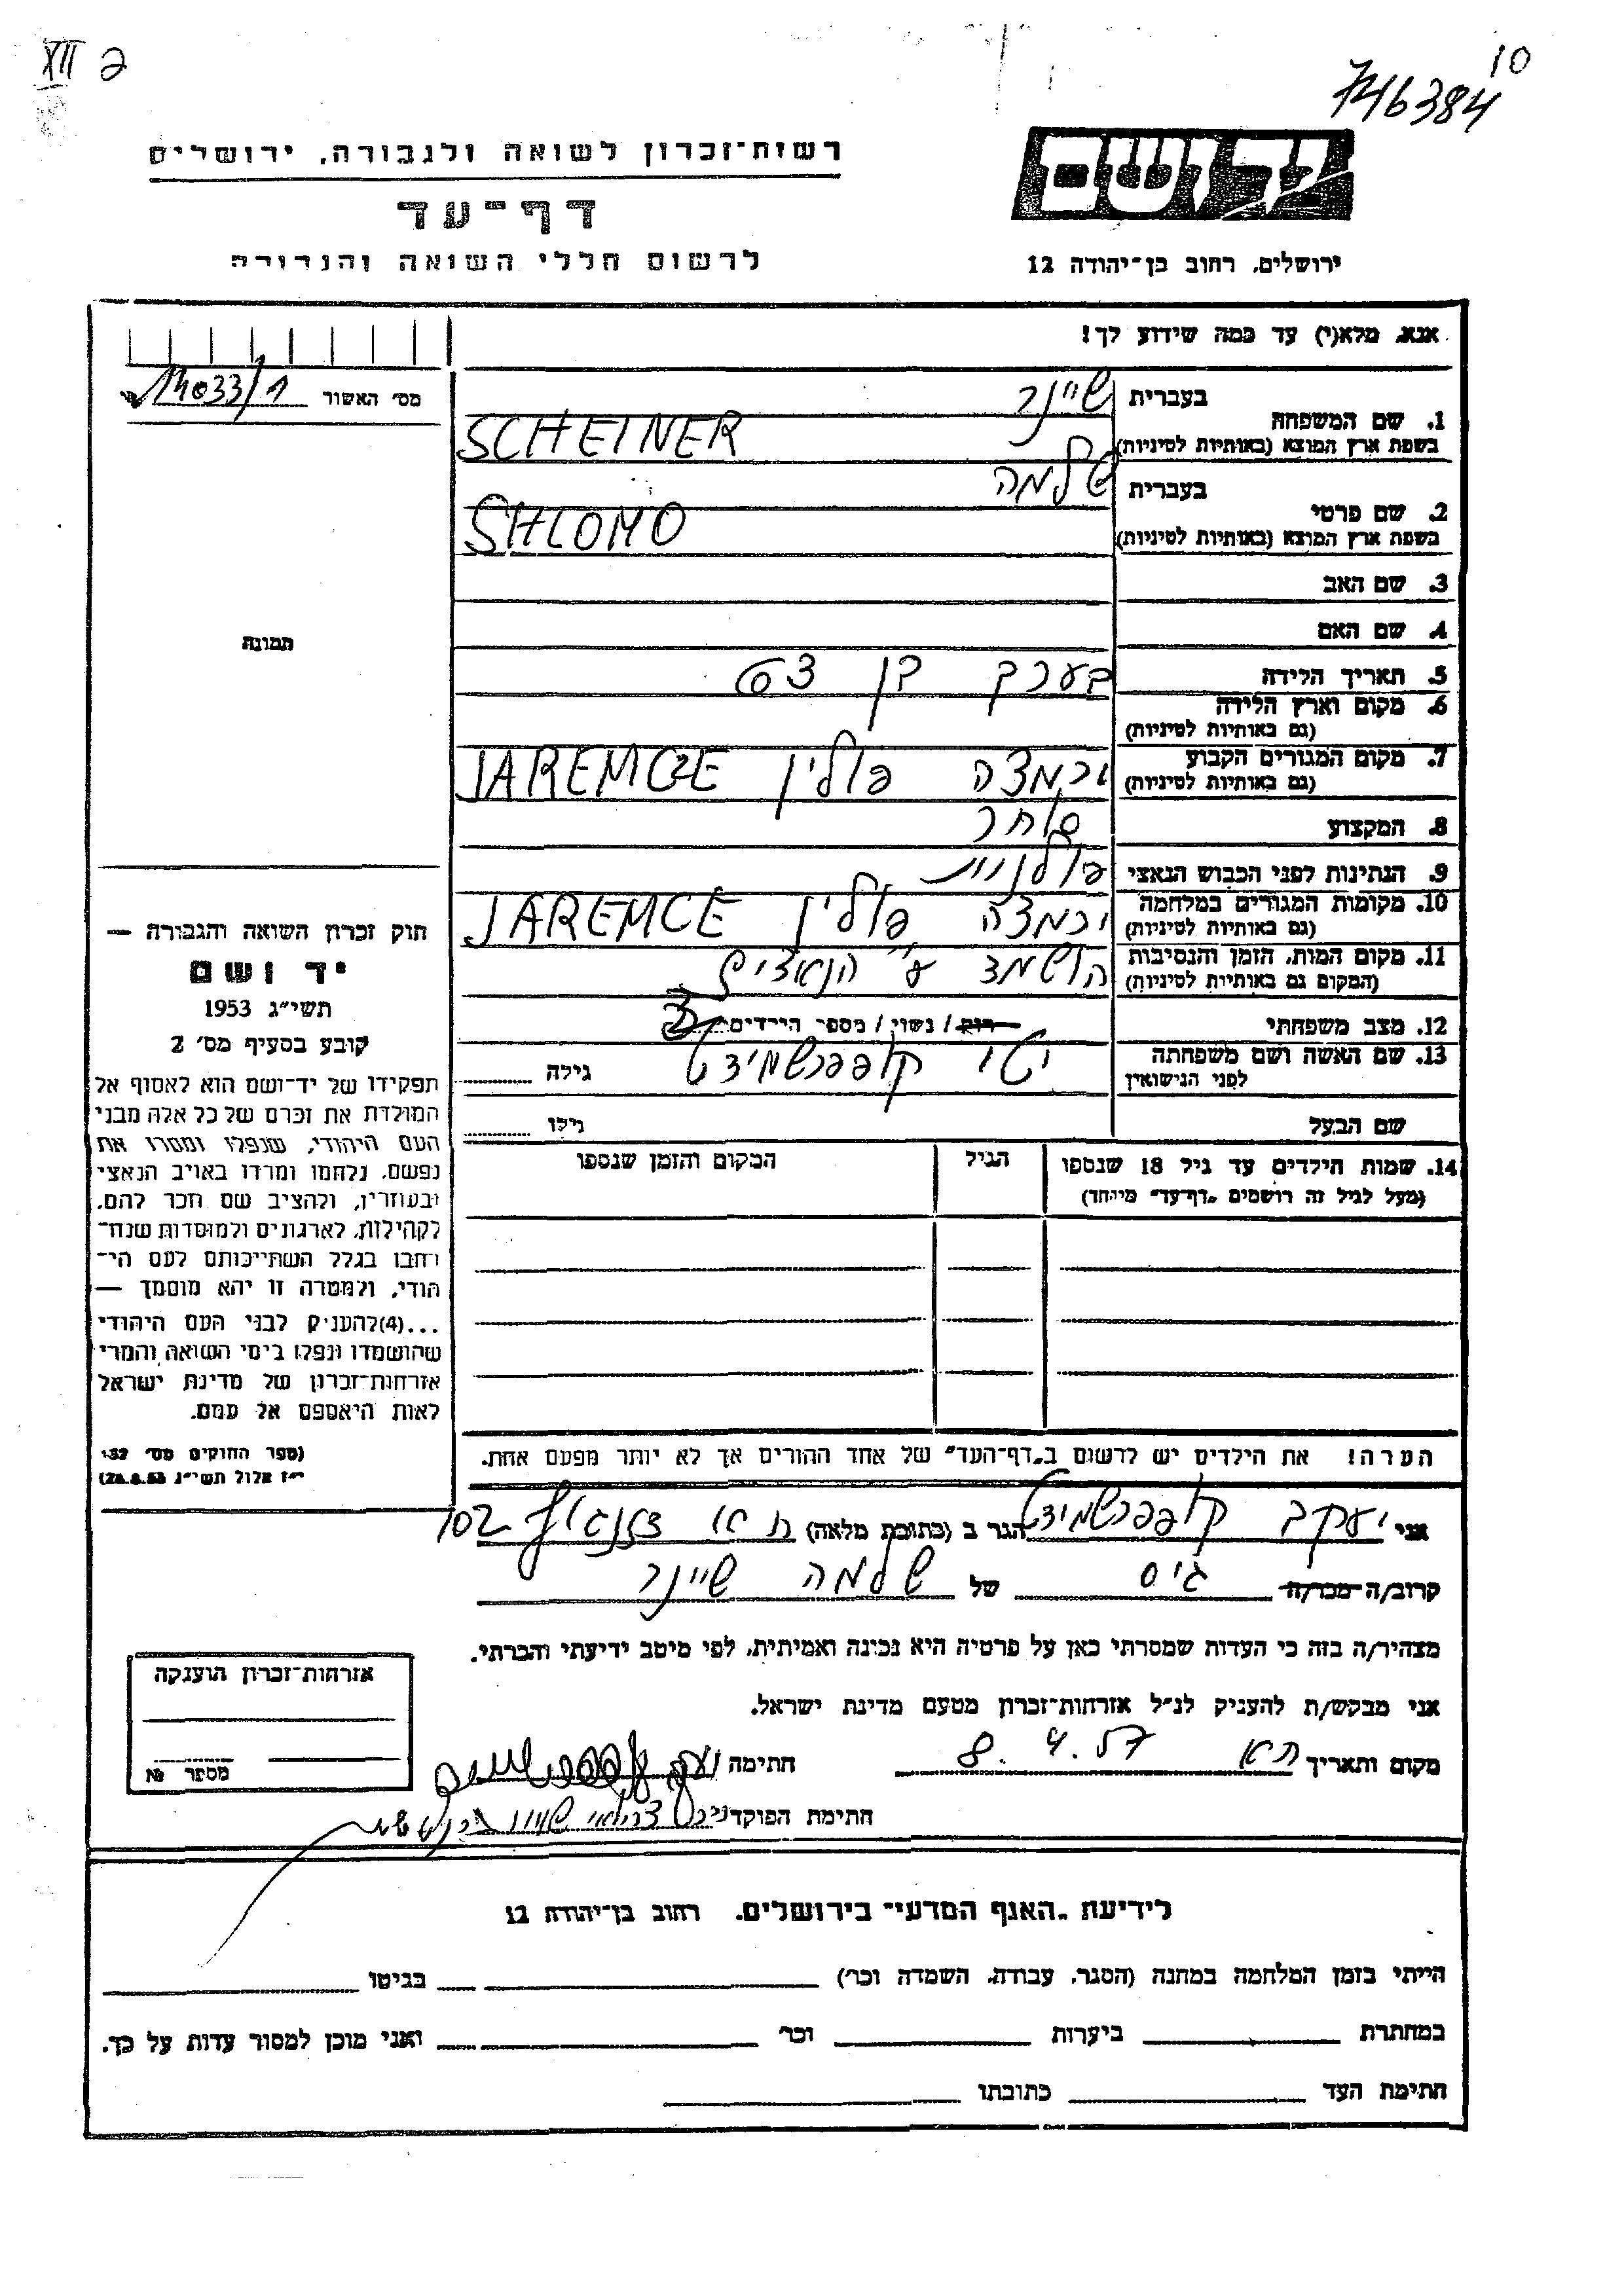 XII 2
10
746384
יד ושם
רשות־זכרון לשואה ולגבורה, ירושלים
דף־עד
לרשום חללי השואה והגבורה
ירושלים, רחוב בן־יהודה 12
אנא, מלא(י) עד כמה שידוע לך!
מס׳ האשור 14033/1
1. שם המשפחה
בעברית שיינר
בשפת ארץ המוצא (באותיות לטיניות) SCHEINER
2. שם פרטי
בעברית שלמה
בשפת ארץ המוצא (באותיות לטיניות) SHLOMO
3. שם האב
4. שם האם
5. תאריך הלידה בערך בן 63
6. מקום וארץ הלידה
(גם באותיות לטיניות)
7. מקום המגורים הקבוע ירמצה פולין JAREMCZE
(גם באותיות לטיניות)
8. המקצוע סוחר
9. הנתינות לפני הכבוש הנאצי פולנית
10. מקומות המגורים במלחמה ירמצה פולין JAREMCE
(גם באותיות לטיניות)
11. מקום המות, הזמן והנסיבות הושמד ע״י הנאצים
(המקום גם באותיות לטיניות)
12. מצב משפחתי רוק / נשוי / מספר הילדים 3
13. שם האשה ושם משפחתה יטי קופפרשמידט גילה
לפני הנישואין
שם הבעל גילו
14. שמות הילדים עד גיל 18 שנספו הגיל המקום והזמן שנספו
(מעל לגיל זה רושמים „דף־עד״ מיוחד)
הערה! את הילדים יש לרשום ב„דף־העד״ של אחד ההורים אך לא יותר מפעם אחת.
תמונה
חוק זכרון השואה והגבורה —
יד ושם
תשי״ג 1953
קובע בסעיף מס׳ 2
תפקידו של יד־ושם הוא לאסוף אל
המולדת את זכרם של כל אלה מבני
העם היהודי, שנפלו ומסרו את
נפשם, נלחמו ומרדו באויב הנאצי
ובעוזריו, ולהציב שם וזכר להם,
לקהילות, לארגונים ולמוסדות שנח־
רבו בגלל השתייכותם לעם הי־
הודי, ולמטרה זו יהא מוסמך —
...(4)להעניק לבני העם היהודי
שהושמדו ונפלו בימי השואה והמרי
אזרחות־זכרון של מדינת ישראל
לאות היאספם אל עמם.
(ספר החוקים מס׳ 132
י״ז אלול תשי״ג 28.8.53)
אני יעקב קופפרשמידט הגר ב (כתובת מלאה) 102
קרוב/ה מכר/ה גיס של שלמה שיינר
מצהיר/ה בזה כי העדות שמסרתי כאן על פרטיה היא נכונה ואמיתית, לפי מיטב ידיעתי והכרתי.
אני מבקש/ת להעניק לנ״ל אזרחות־זכרון מטעם מדינת ישראל.
מקום ותאריך ת״א 8. 4. 57 חתימה
חתימת הפוקד
אזרחות־זכרון הוענקה
מספר №
לידיעת „האגף המדעי״ בירושלים, רחוב בן־יהודה 12
הייתי בזמן המלחמה במחנה (הסגר, עבודה, השמדה וכו׳) בגיטו
במחתרת ביערות וכו׳ ואני מוכן למסור עדות על כך.
חתימת העד כתובתו